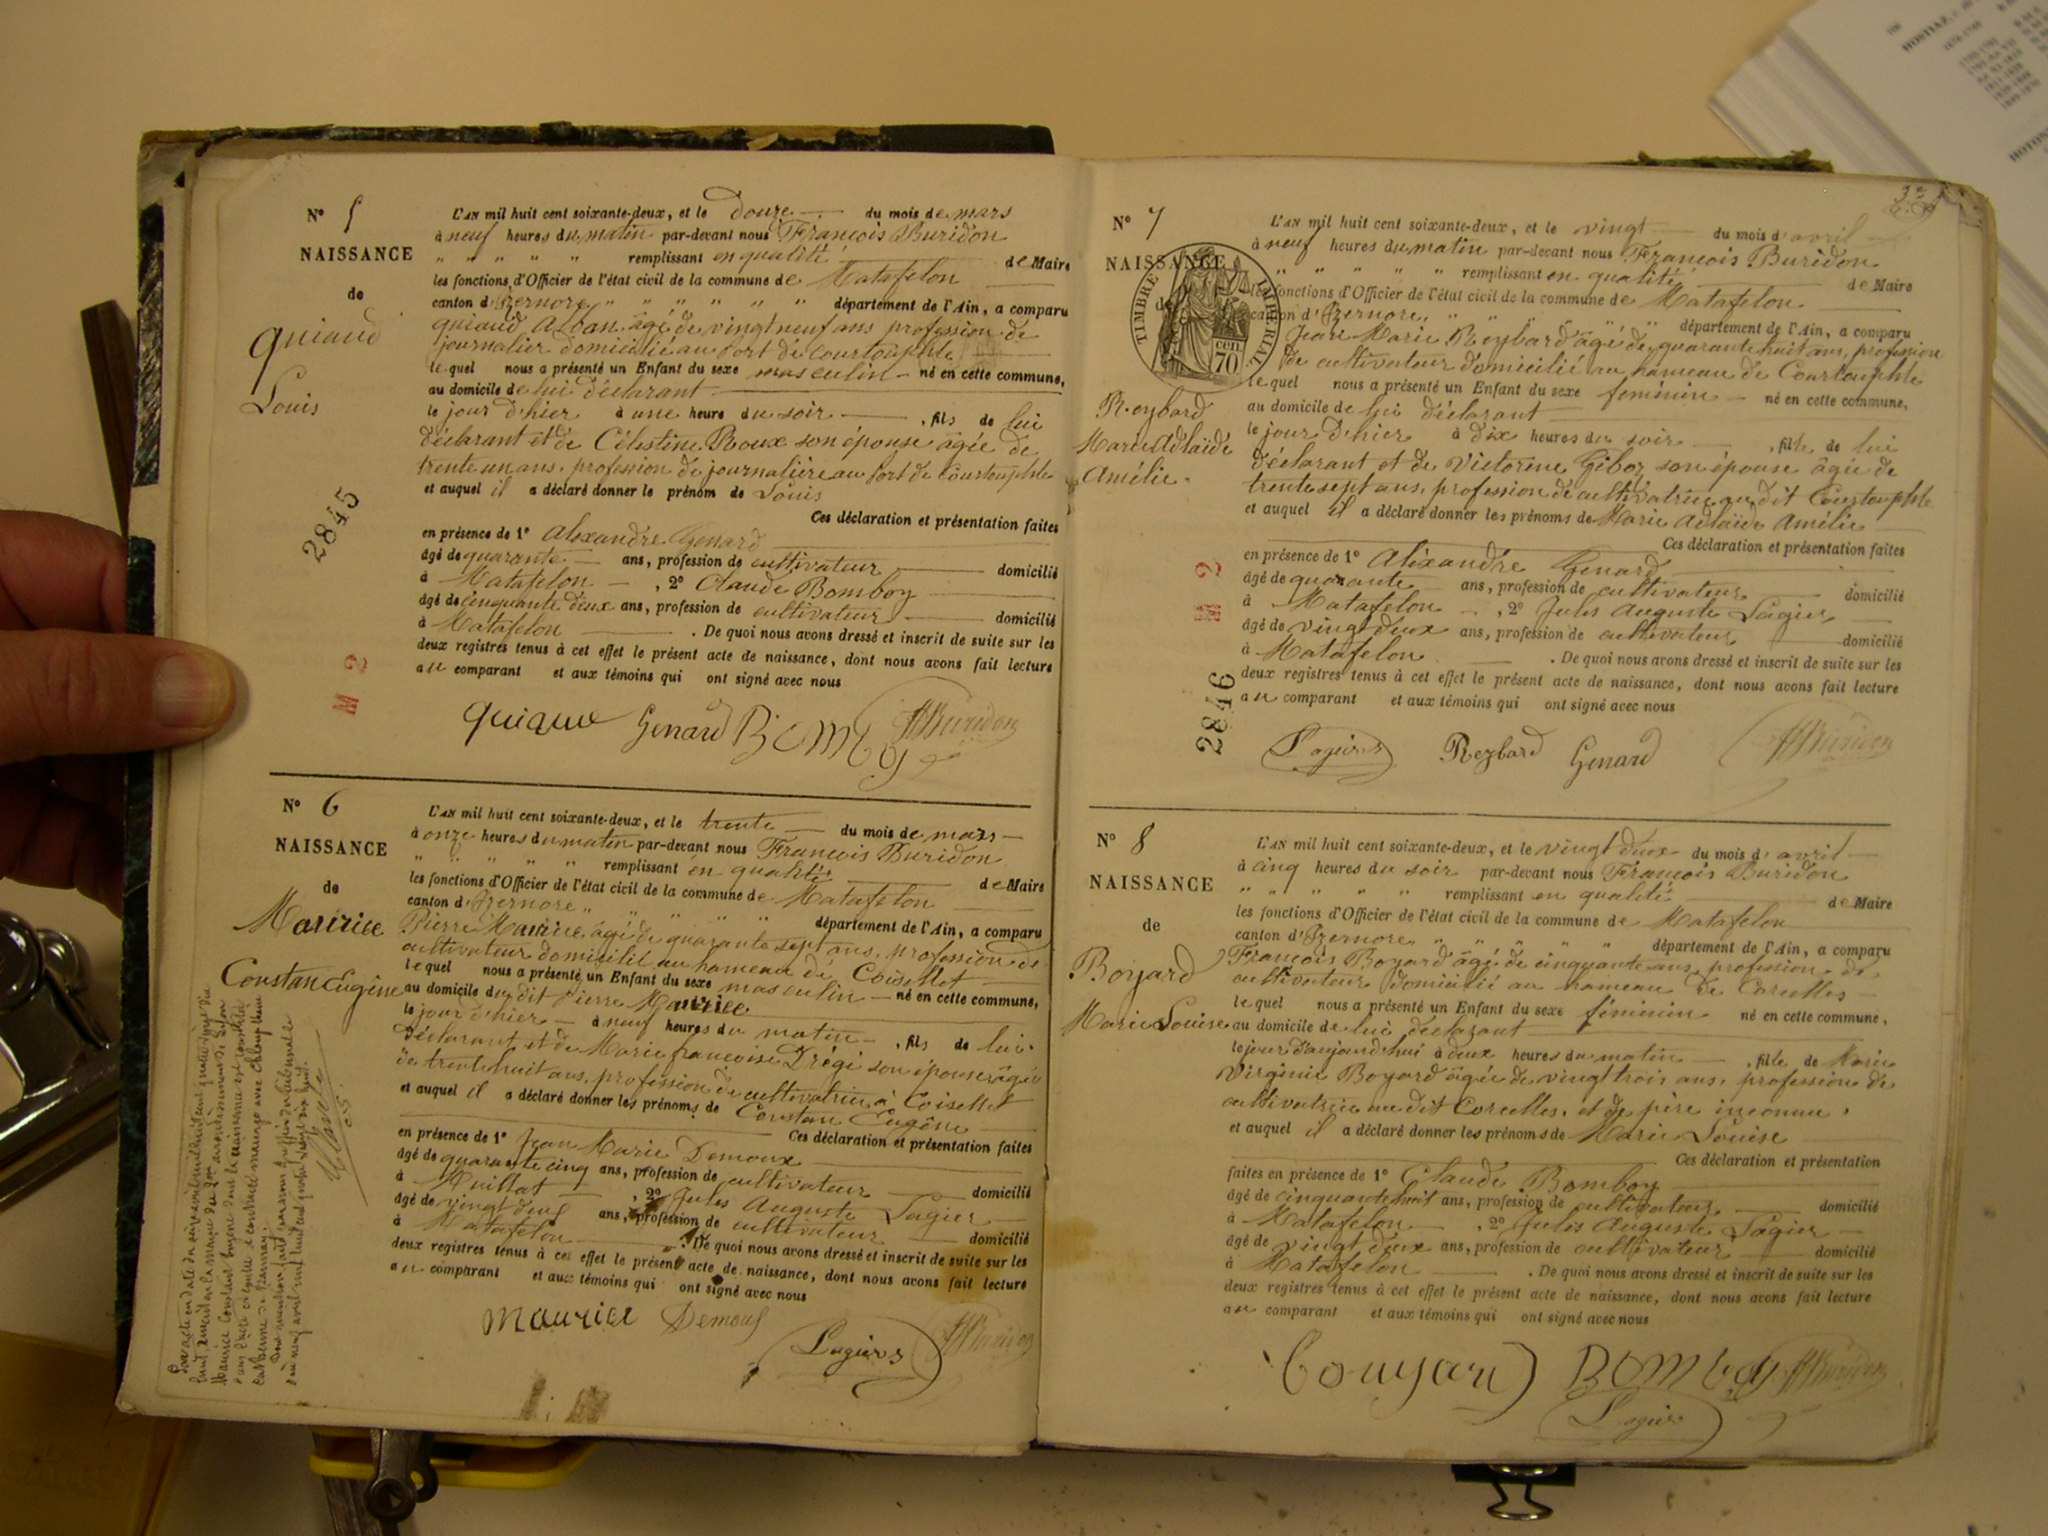 N° 5
NAISSANCE
de
Quiaud
Louis
2845
M 2
L'AN mil huit cent soixante-deux, et le douze du mois de mars
à neuf heures du matin par-devant nous François Buridon
" " " " " remplissant en qualité de Maire
les fonctions d'Officier de l'état civil de la commune de Matafelon
canton d'Izernore " " " " " " département de l'Ain, a comparu
Quiaud Alban âgé de vingt neuf ans profession de
journalier domicilié au Port de Courtouphle
le quel nous a présenté un Enfant du sexe masculin né en cette commune,
au domicile de lui déclarant
le jour d'hier à une heure du soir , fils de lui
déclarant et de Célestine Roux son épouse âgée de
trente un ans, profession de journalière au Port de Courtouphle
et auquel il a déclaré donner le prénom de Louis
Ces déclaration et présentation faites
en présence de 1° Alexandre Genard
âgé de quarante ans, profession de cultivateur domicilié
à Matafelon , 2° Claude Bomboy
âgé de cinquante deux ans, profession de cultivateur domicilié
à Matafelon . De quoi nous avons dressé et inscrit de suite sur les
deux registres tenus à cet effet le présent acte de naissance, dont nous avons fait lecture
au comparant et aux témoins qui ont signé avec nous
Quiaud Genard Bomboy Buridon
N° 6
NAISSANCE
de
Maurice
Constan Eugène
L'AN mil huit cent soixante-deux, et le trente du mois de mars
à onze heures du matin par-devant nous François Buridon
" " " " " remplissant en qualité de Maire
les fonctions d'Officier de l'état civil de la commune de Matafelon
canton d'Izernore " " " " " département de l'Ain, a comparu
Pierre Maurice âgé de quarante sept ans, profession de
cultivateur domicilié au hameau de Coisellet
le quel nous a présenté un Enfant du sexe masculin né en cette commune,
au domicile du dit Pierre Maurice
le jour d'hier à neuf heures du matin , fils de lui
déclarant et de Marie françoise Drégi son épouse âgée
de trente huit ans, profession de cultivatrice à Coisellet
et auquel il a déclaré donner les prénoms de Constan Eugène
Ces déclaration et présentation faites
en présence de 1° Jean Marie Demoux
âgé de quarante cinq ans, profession de cultivateur domicilié
à , 2° Jules Auguste Lagier
âgé de vingt deux ans, profession de cultivateur domicilié
à Matafelon . De quoi nous avons dressé et inscrit de suite sur les
deux registres tenus à cet effet le présent acte de naissance, dont nous avons fait lecture
au comparant et aux témoins qui ont signé avec nous
Maurice Lagier Buridon
N° 7
NAISSANCE
de
TIMBRE IMPERIAL
70 cen
Reybard
Marie Adélaïde
Amélie
M 2
2846
L'AN mil huit cent soixante-deux, et le vingt du mois d'avril
à neuf heures du matin par-devant nous François Buridon
" " " " " remplissant en qualité de Maire
les fonctions d'Officier de l'état civil de la commune de Matafelon
canton d'Izernore " " " " " département de l'Ain, a comparu
Jean Marie Reybard âgé de quarante huit ans, profession
de cultivateur domicilié au hameau de Courtouphle
le quel nous a présenté un Enfant du sexe féminin né en cette commune,
au domicile de lui déclarant
le jour d'hier à dix heures du soir , fille de lui
déclarant et de Victorine Giboz son épouse âgée de
trente sept ans, profession de cultivatrice au dit Courtouphle
et auquel il a déclaré donner les prénoms de Marie Adélaïde Amélie
Ces déclaration et présentation faites
en présence de 1° Alexandre Genard
âgé de quarante ans, profession de cultivateur domicilié
à Matafelon , 2° Jules Auguste Lagier
âgé de vingt deux ans, profession de cultivateur domicilié
à Matafelon . De quoi nous avons dressé et inscrit de suite sur les
deux registres tenus à cet effet le présent acte de naissance, dont nous avons fait lecture
au comparant et aux témoins qui ont signé avec nous
Lagier Reybard Genard Buridon
N° 8
NAISSANCE
de
Boyard
Marie Louise
L'AN mil huit cent soixante-deux, et le vingt deux du mois d'avril
à cinq heures du soir par-devant nous François Buridon
" " " " " remplissant en qualité de Maire
les fonctions d'Officier de l'état civil de la commune de Matafelon
canton d'Izernore " " " " département de l'Ain, a comparu
François Boyard âgé de cinquante ans, profession de
cultivateur domicilié au hameau de Corcelles
le quel nous a présenté un Enfant du sexe féminin né en cette commune,
au domicile de lui déclarant
le jour d'aujourd'hui à deux heures du matin , fille de Marie
Virginie Boyard âgée de vingt trois ans, profession de
cultivatrice au dit Corcelles, et de père inconnu
et auquel il a déclaré donner les prénoms de Marie Louise
Ces déclaration et présentation
faites en présence de 1° Claude Bomboy
âgé de cinquante huit ans, profession de cultivateur domicilié
à Matafelon , 2° Jules Auguste Lagier
âgé de vingt deux ans, profession de cultivateur domicilié
à Matafelon . De quoi nous avons dressé et inscrit de suite sur les
deux registres tenus à cet effet le présent acte de naissance, dont nous avons fait lecture
au comparant et aux témoins qui ont signé avec nous
Bouyard Bomboy Buridon
Lagier